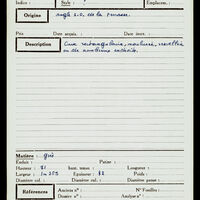 Indice : Style : Emplacem. :
Origine angle S.O. de la terrasse.
Prix Date acquis. : Date inv. :
Description Cuve rectangulaire, moulurée, rectifiée
en de nombreux endroits.
Matière : grès
Enduit : Patine :
Hauteur : 81 haut. tenon : Longueur :
Largeur : 1m205 Epaisseur : 82 Poids :
Diamètre sup. : Diamètre col. : Diamètre panse :
Références Ancien n° : N° Fouilles :
Douane n° : Analyse n° :